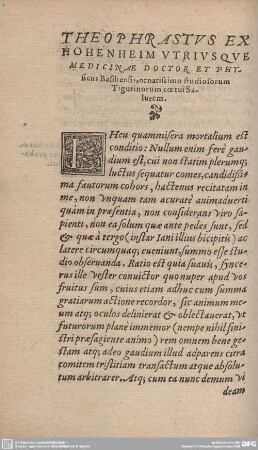 THEOPHRASTVS EX
HOHENHEIM VTRIVSQVE
MEDICINAE DOCTOR ET PHY-
sicus Basiliensis, ornatissimo studiosorum
Tigurinorum, cœtui Sa-
lutem.
EHeu quam misera mortalium est
conditio: Nullum enim ferè gau-
dium est, cui non statim plerumq;
luctus sequatur comes, candidissi-
ma fautorum cohors, hactenus recitatam in
me, non vnquam tam acuratè animaduerti
quàm in præsentia, non considerans viro sa-
pienti, non ea solum quæ ante pedes sunt, sed
& quæ à tergo (instar Iani illius bicipitis) ac
latere circumquaq; eueniunt, summo esse stu-
dio obseruanda. Ratio est quia suauis, synce-
rus ille vester conuictor quo nuper apud vos
fruitus sum, cuius etiam adhuc cum summa
gratiarum actione recordor, sic animum me-
um atq; oculos delinierat & oblectauerat, vt
futurorum planè immemor (nempe nihil sini-
stri præsagiente animo) rem omnem bene ge-
stam atq; adeo gaudium illud adparens citra
comitem tristitiam transactum atque absolu-
tum arbitrarer. Atq; cum ea nunc demum vi
deam